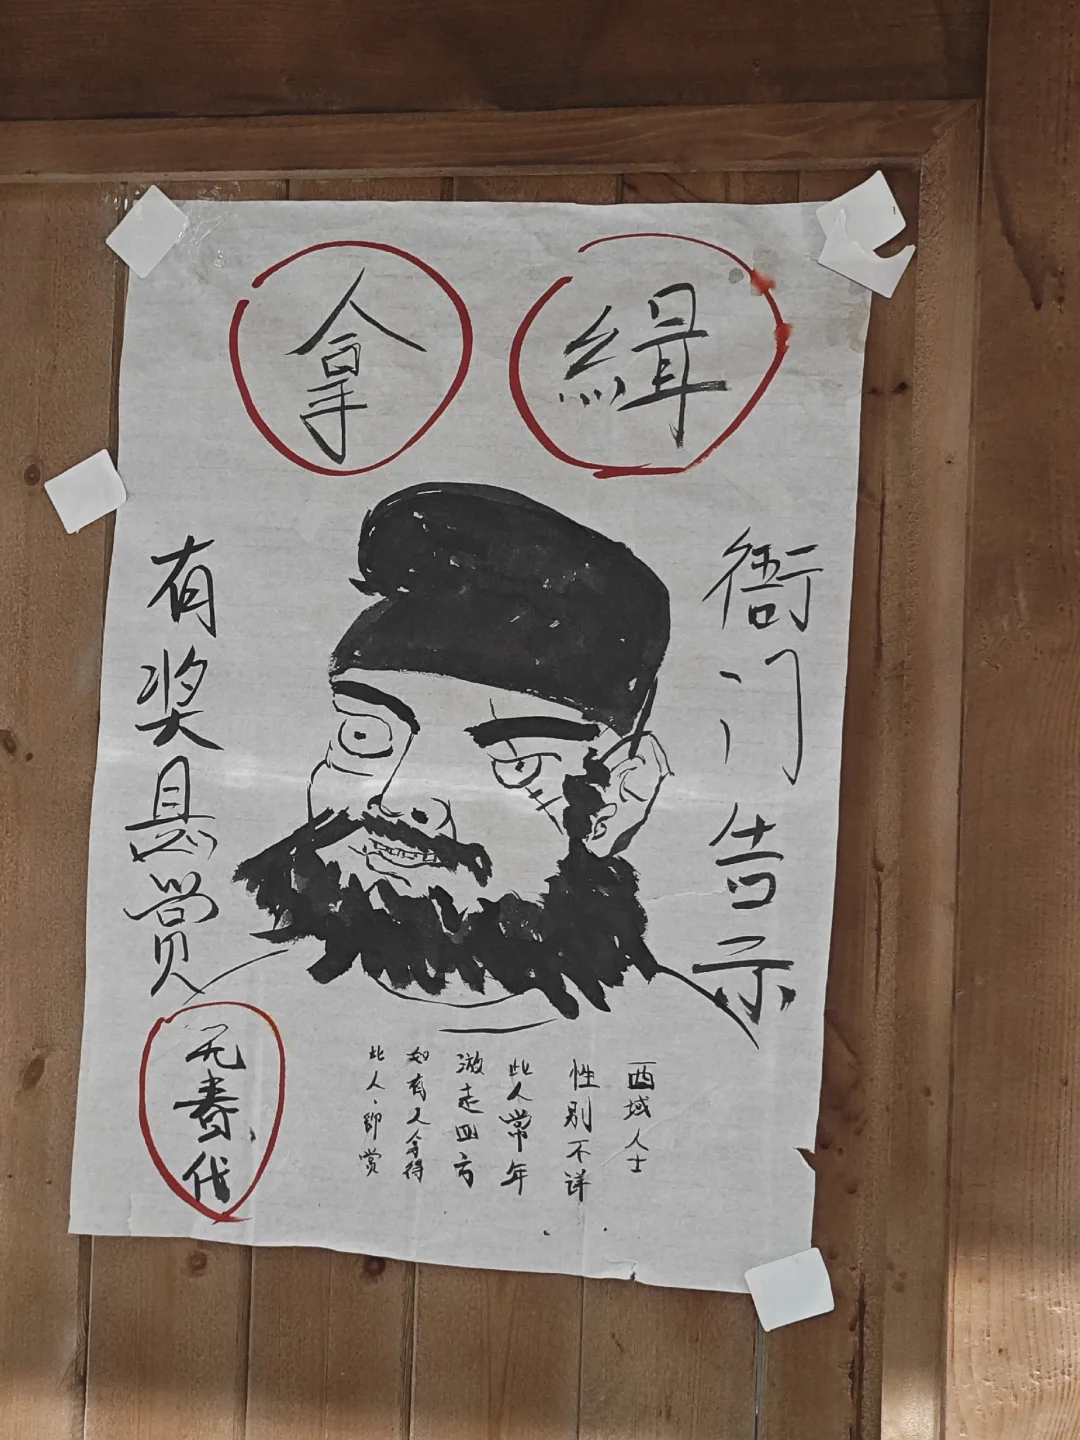 緝拿
衙门告示
有奖悬赏
西域人士
性别不详
此人常年
游走四方
如有人拿得
此人、即赏